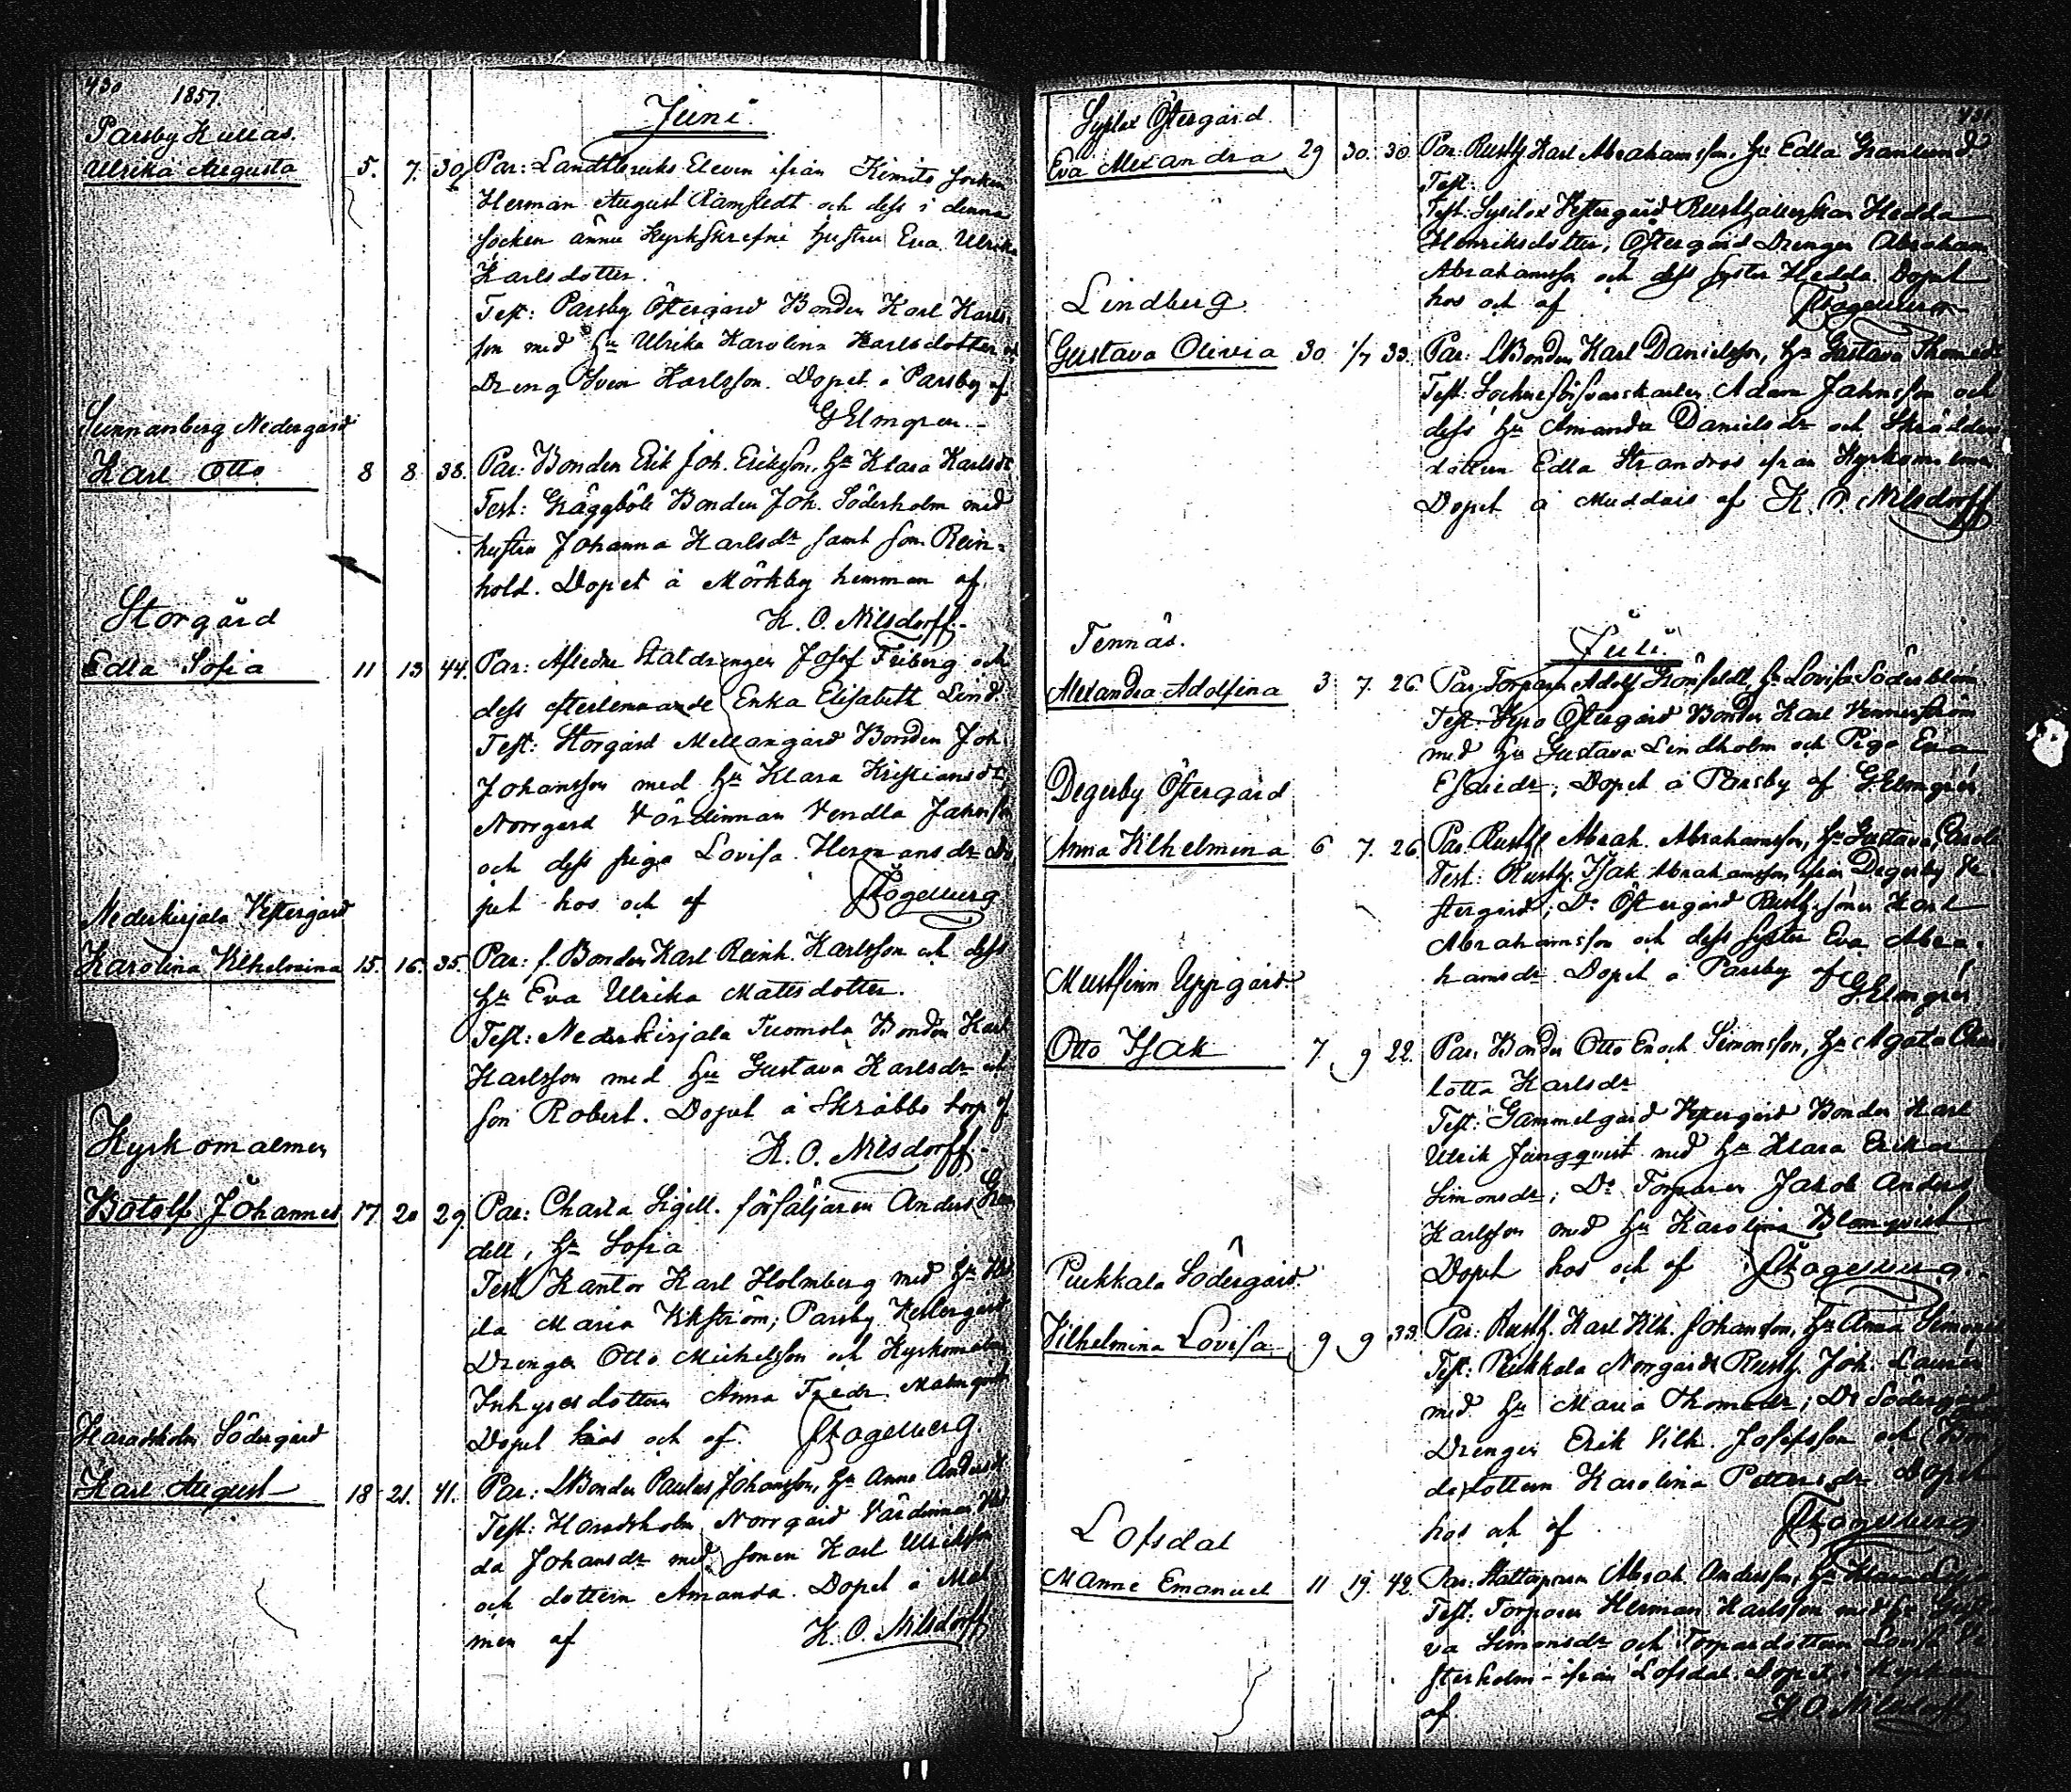 430
1857
Juni
Parsby Kullas.
Ulrika Augusta 5. 7. 30 Par: Landtbruks Eleven ifrån Kimito socken
Herman August Ramstedt och dess i denna
socken ännu Kyrkskrefne hustru Eva Ulrika
Karlsdotter.
Test: Parsby Östergård Bonden Karl Karls-
son med Hu Ulrika Karolina Karlsdotter
Dreng Sven Karlsson. Dopet å Parsby af
G Elmgren.
Sunnanberg Nedergård
Karl Otto 8 8 38. Par: Bonden Erik Joh. Eriksson, Hu Klara Karlsdr
Test: Gräggböle Bonden Joh. Söderholm med
hustru Johanna Karlsdr samt son Rein-
hold. Dopet å Mörkby hemman af
K. O. Nilsdorff.
Storgård
Edla Sofia 11 13 44. Par: Afledne Staldrengen Josef Friberg och
dess efterlemnande Enka Elisabeth Lind.
Test: Storgård Mellangård Bonden Joh
Johansson med Hu Klara Kristiansdr,
Norrgård Värdinnan Vendla
och dess piga Lovisa Hermansdr Do
pet hos och af
Nederkirjala Vestergård
Karolina Vilhelmina 15. 16. 35. Par: f. Bonden Karl Reinh. Karlsson och dess
Hu Eva Ulrika Mattsdotter.
Test: Nederkirjala Tuomola Bonden Karl
Karlsson med Hu Gustava Karlsdr och
son Robert. Dopet å Skräbbo torp af
K. O. Nilsdorff.
Kyrkomalmen
Botolf Johannes 17 20 29. Par: Charta Sigill. försäljaren Anders
dell, Hu Sofia
Test Kantor Karl Holmberg med Hu
da Maria Vikström; Parsby Vestergård
Drengen Otto Michelsson och Kyrkomalmen
Inhysesdottern Anna Fredr. Malmqvist
Dopet hos och af
Haradsholm Södergård
Karl August 18 21. 41. Par: LBonden Paulus Johansson, Hu Anna Andersdr
Test: Haradsholm Norrgård Värdinnan
da Johansdr med sonen Karl Ulriksson
och dottern Amanda. Dopet å Mal
men af K. O. Nilsdorff
431
Syslax Östergård
Eva Alexandra 29 30. 30. Par. Rusth Karl Abrahamsson, Hu Edla Granlund
Test:
Test: Syslax Vestergård Rusthållerskan Hedda
Henriksdotter, Östergård Drengen Abraham
Abrahamsson och dess syster Hedda Dopet
hos och af
Lindberg
Gustava Olivia 30 1/7 33. Par: LBonden Karl Danielsson, Hu Gustava Thomasdr
Test: Sockneförsvarskarlen Adam Jahnsson och
dess Hu Amanda Danielsdr och Skräddare
dottern Edla Strandros ifrån Kyrkomalmen
Dopet å Muddais af K. O. Nilsdorff
Juli.
Tennäs.
Alexandra Adolfina 3 7. 26. Par Torparn Adolf Lovisa Söderblom
Test: Östergård Bonden Karl Vennerström
med Hu Gustava Lindholm och Piga Eva
Esaiedr; Dopet å Parsby af G Elmgren
Degerby Östergård
Anna Vilhelmina 6 7. 26. Par. Rusth Abrah. Abrahamsson, Hu Gustava
Test: Rusth. Isak Abrahamsson ifrån Degerby Ve
stergård; Do Östergård Rusth. sonen Karl
Abrahamsson och dess syster Eva Abra-
hamsdr Dopet å Parsby af G Elmgren
Mustfinn Uppgård
Otto Isak 7 9 22. Par. Bonden Otto Enoch Simonsson, Hu Agata Char
lotta Karlsdr
Test: Gammelgård Vestergård Bonden Karl
Ulrik Ljungqvist med Hu Klara Erika
Simonsdr; Do Torparen Jakob Anders
Karlsson med Hu Karolina Blomqvist
Dopet hos och af
Pukkala Södergård.
Vilhelmina Lovisa 9 9 33. Par: Rusth. Karl Vilh. Johansson, Hu Anna Simonsdr
Test: Pukkala Norrgårds Rusth. Joh. Laurén
med Hu Maria Thomasdr; Do Södergård
Drengen Erik Vilh. Josefsson och Bon
dedottern Karolina Pettersdr Dopet
hos och af
Lofsdal
Manne Emanuel 11 19. 42. Par: Stattorparen Abrah. Andersson, Hu Klara
Test: Torparen Herman Karlsson med Hu Gusta
va Simonsdr och Torparedottern Lovisa Ve
sterholm ifrån Lofsdal Dopet i Kyrkan
af K O Nilsdorff